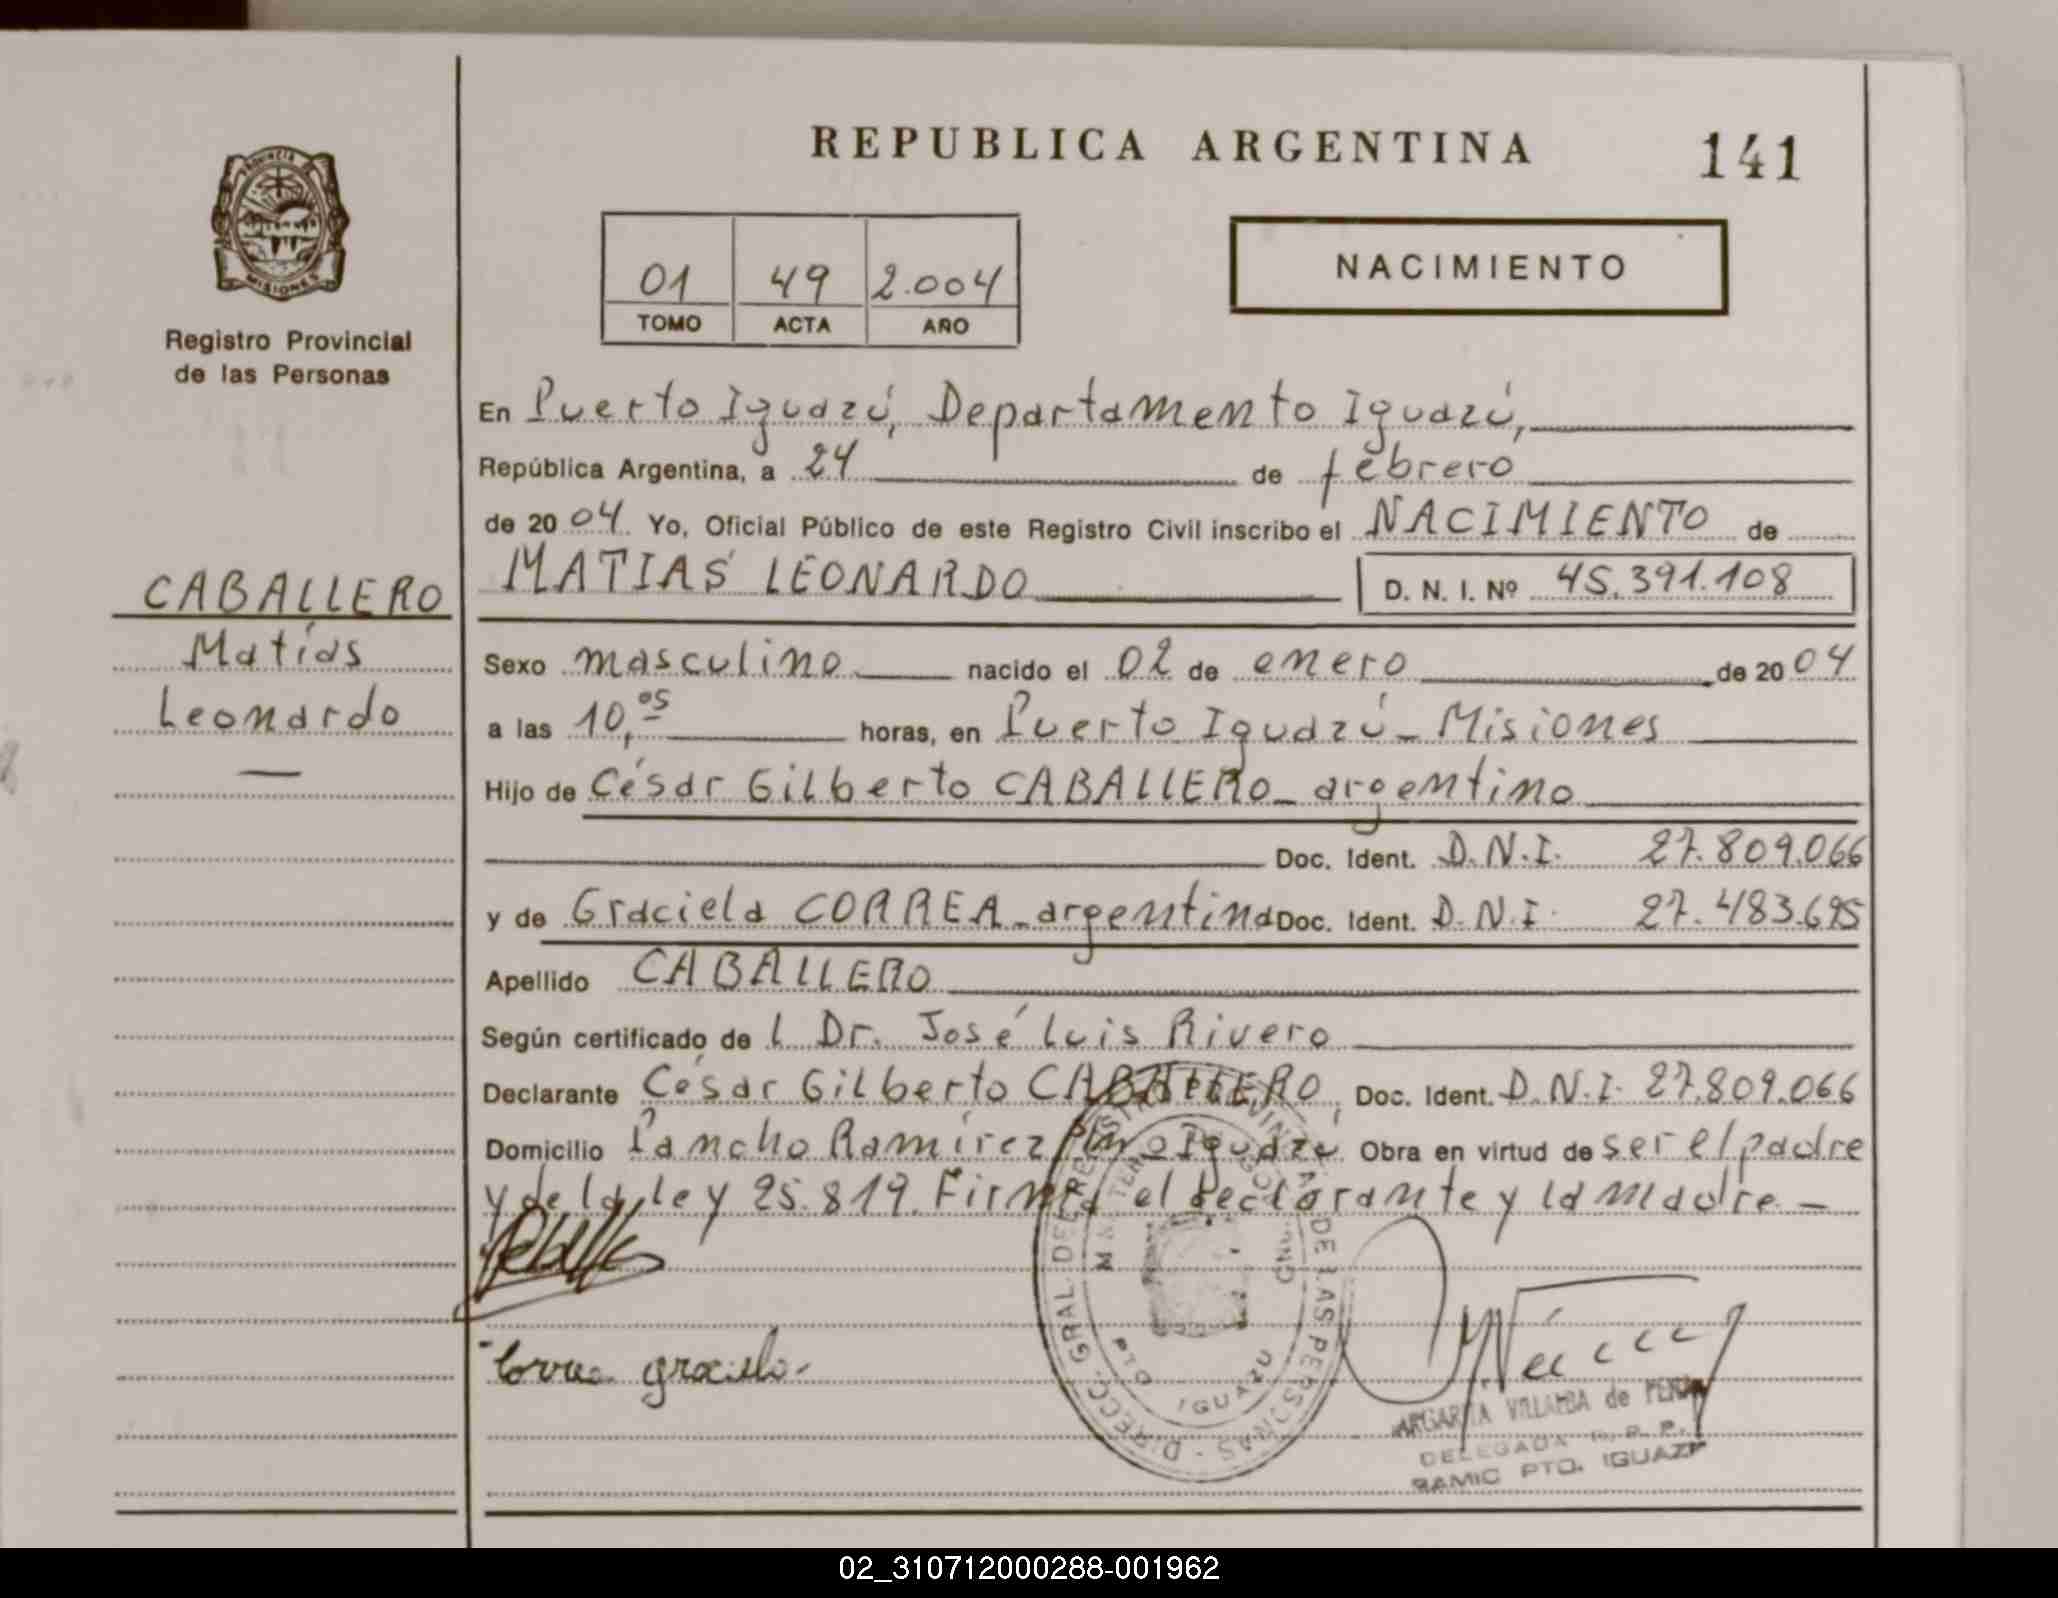 REPUBLICA ARGENTINA
141
PROVINCIA DE
MISIONES
Registro Provincial
de las Personas
01 49 2.004
TOMO ACTA AÑO
NACIMIENTO
En Puerto Iguazú, Departamento Iguazú,
República Argentina, a 24 de febrero
de 20 04 Yo, Oficial Público de este Registro Civil inscribo el NACIMIENTO de
MATIAS LEONARDO D. N. I. Nº 45.391.108
CABALLERO
Matías
Leonardo
Sexo masculino nacido el 02 de enero de 20 04
a las 10,05 horas, en Puerto Iguazú - Misiones
Hijo de César Gilberto CABALLERO - argentino
Doc. Ident. D.N.I. 27.809.066
y de Graciela CORREA - argentina Doc. Ident. D.N.I. 27.483.695
Apellido CABALLERO
Según certificado de l Dr. José Luis Rivero
Declarante César Gilberto CABALLERO, Doc. Ident. D.N.I. 27.809.066
Domicilio Pancho Ramírez Pto Iguazú Obra en virtud de ser el padre
y de la ley 25.819. Firma el declarante y la madre. -
Correa graciela.
DIRECC. GRAL. DEL REGISTRO PROVINCIAL DE LAS PERSONAS
PTO IGUAZU
MARGARITA VILLALBA de
DELEGADA R. P. P.
RAMIC PTO. IGUAZU
02_310712000288-001962